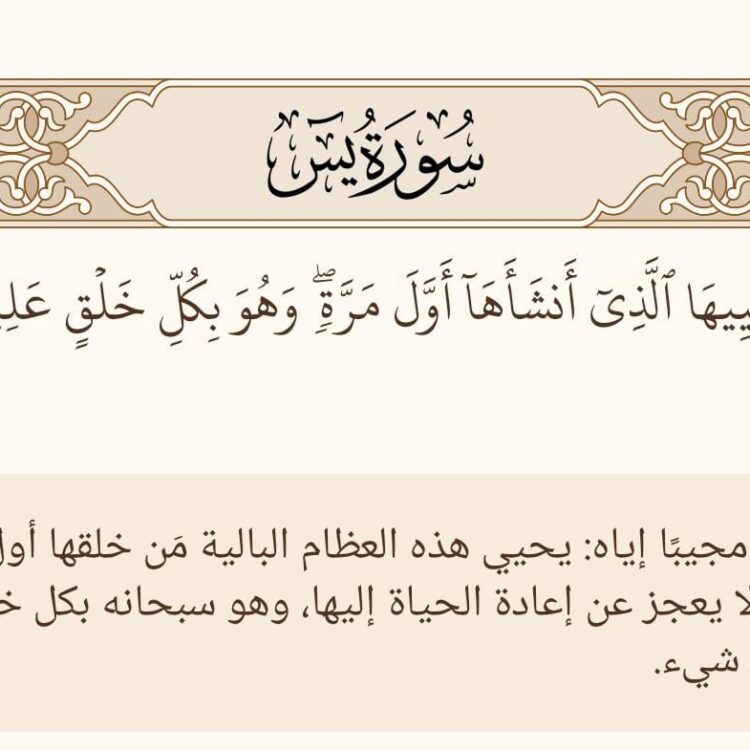 سُورَةُ يسٓ
ٱلَّذِىٓ أَنشَأَهَآ أَوَّلَ مَرَّةٍۢ ۖ وَهُوَ بِكُلِّ خَلْقٍ
مجيبًا إياه: يحيي هذه العظام البالية مَن خلقها أول
لا يعجز عن إعادة الحياة إليها، وهو سبحانه بكل
شيء.